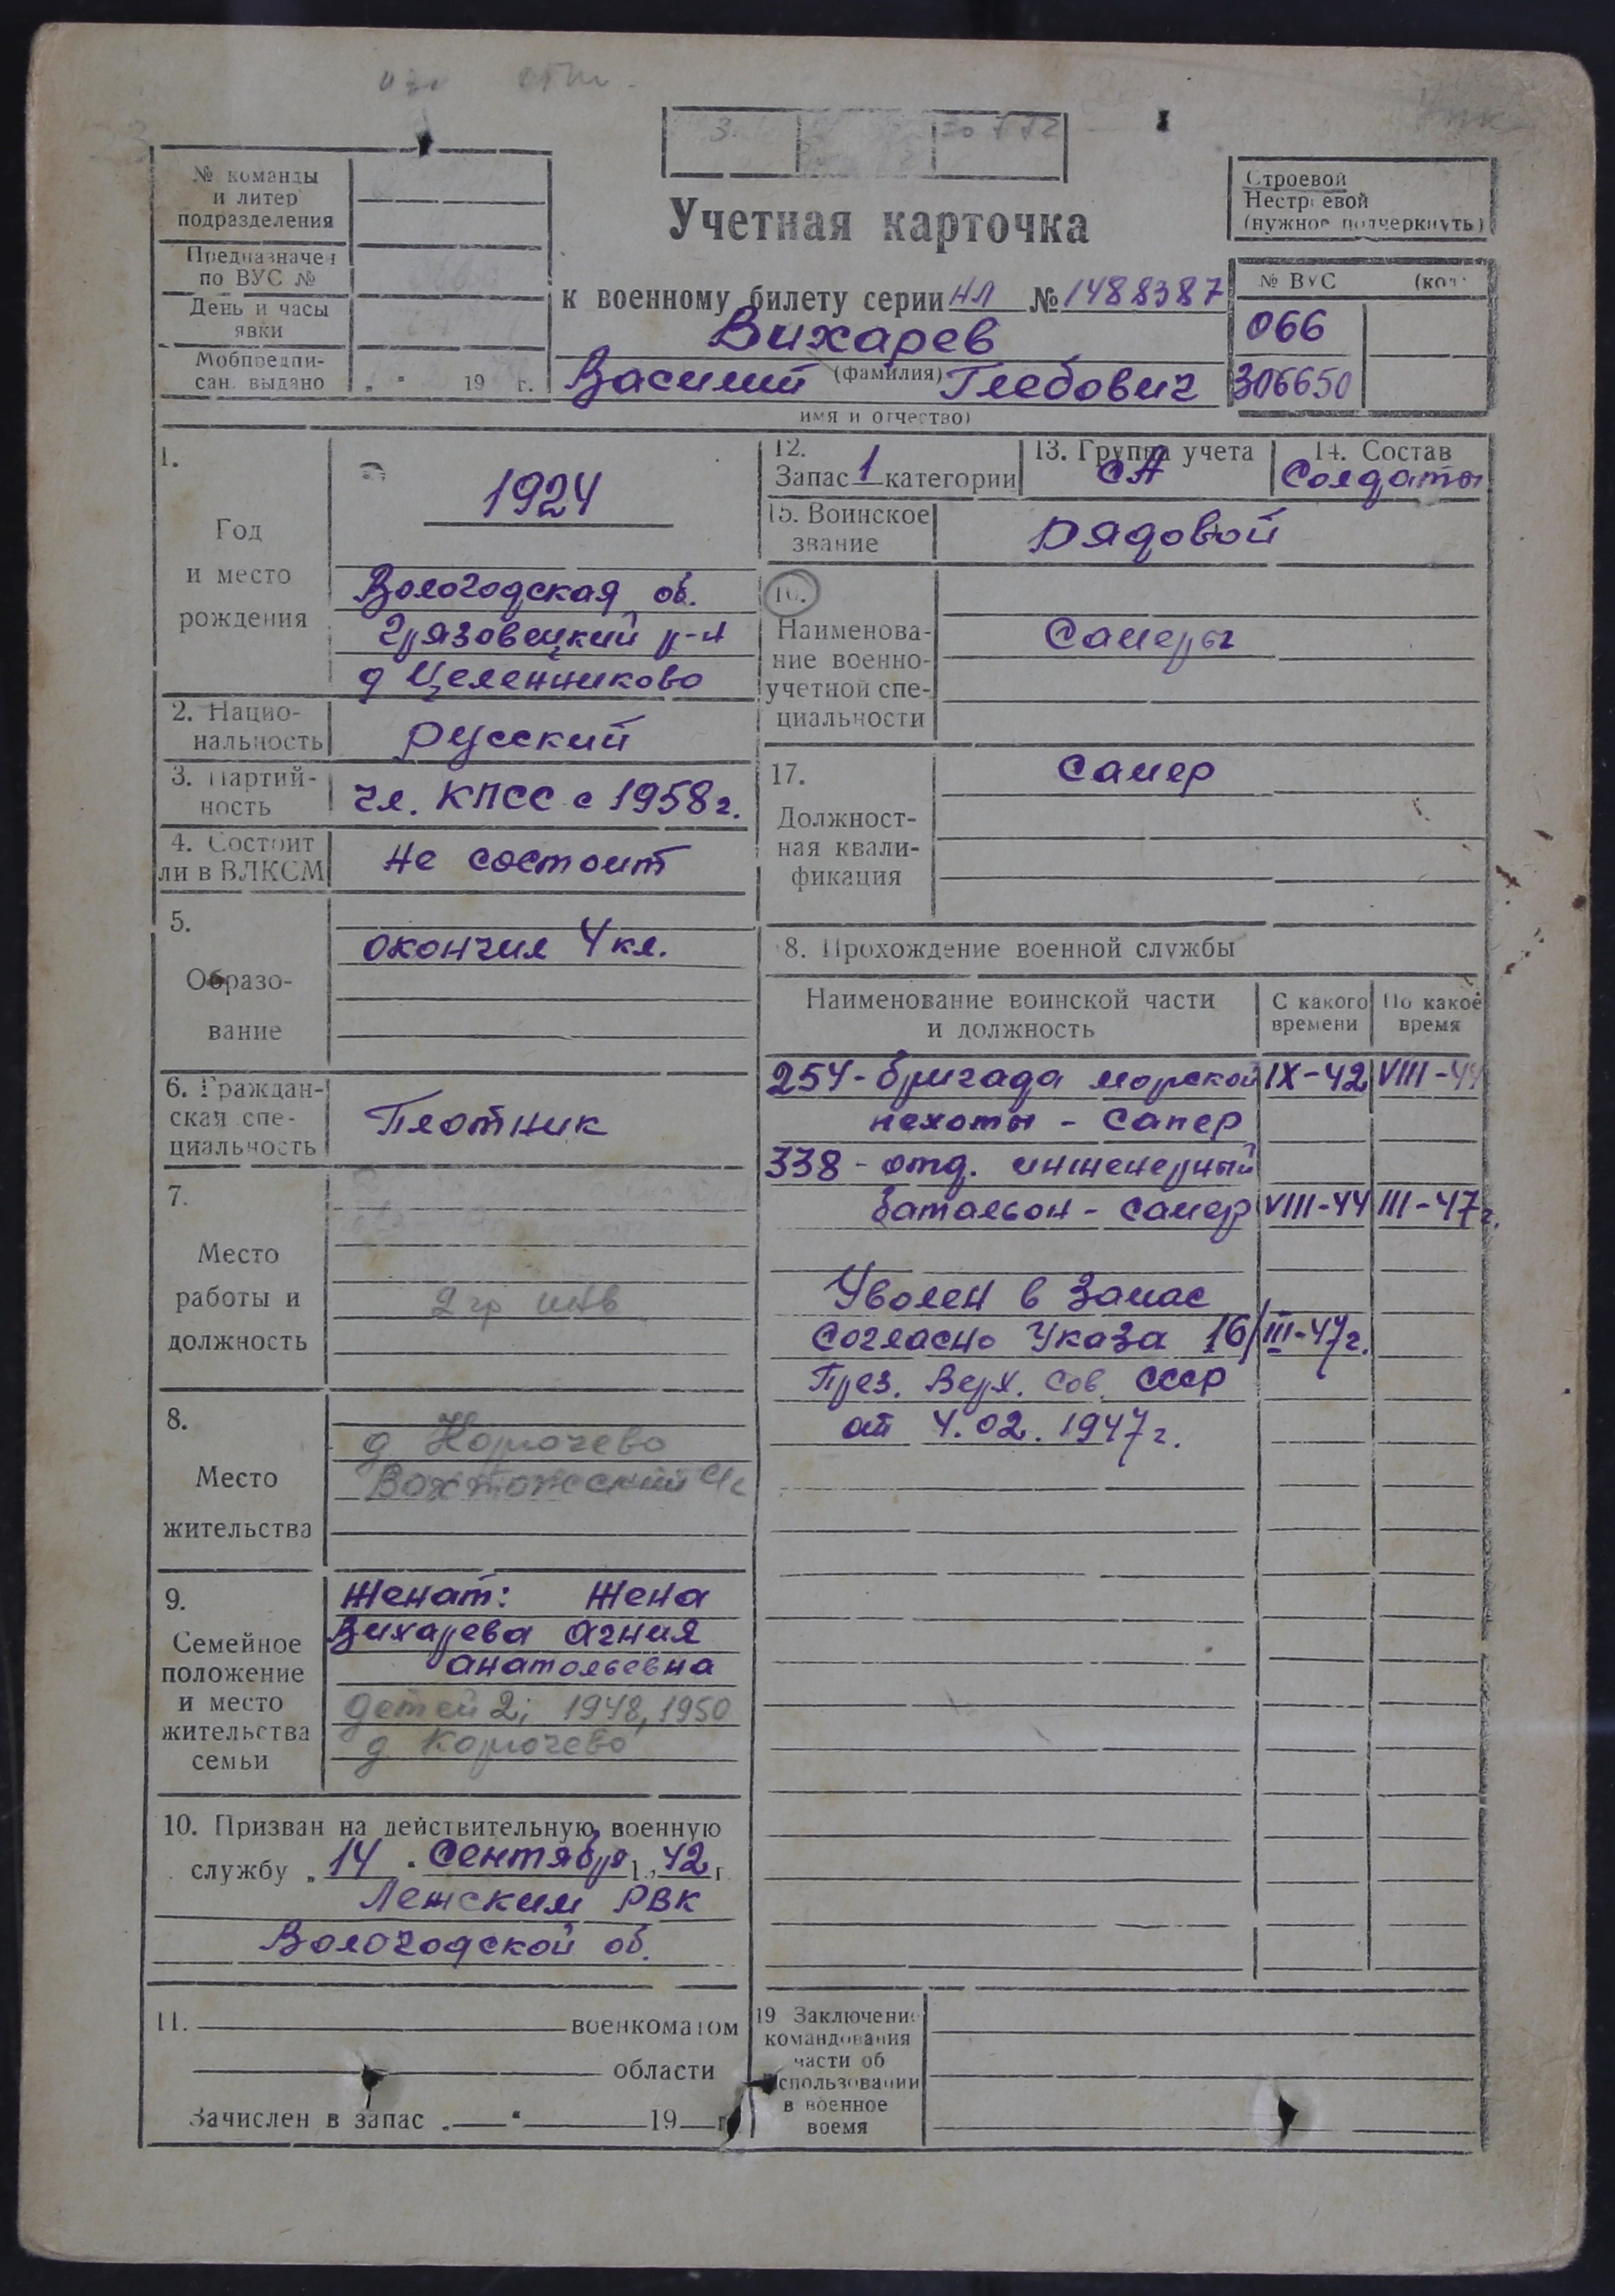 № команды
и литер
подразделения
Предназначен
по ВУС №
День и часы
явки
Мобпредпи-
сан. выдано „ “ 19 г.
Учетная карточка
к военному билету серии НЛ № 1488387
Вихарев
(фамилия)
Василий Глебович
имя и отчество)
Строевой
Нестроевой
(нужное подчеркнуть)
№ ВУС (код)
066
306650
1.
Год
и место
рождения
1924
Вологодская об.
Грязовецкий р-н
д Целенниково
2. Нацио-
нальность
Русский
3. Партий-
ность
чл. КПСС с 1958 г.
4. Состоит
ли в ВЛКСМ
не состоит
5.
Образо-
вание
окончил 4 кл.
6. Граждан-
ская спе-
циальность
Плотник
7.
Место
работы и
должность
2 гр инв
8.
Место
жительства
д Корочево
Вохтожский с/с
9.
Семейное
положение
и место
жительства
семьи
Женат: Жена
Вихарева Агния
Анатольевна
детей 2; 1948, 1950
д Корочево
10. Призван на действительную военную
службу „ 14 . Сентября 1942 г.
Лежским РВК
Вологодской об.
11. военкоматом
области
Зачислен в запас „ “ 19 г.
12.
Запас 1 категории
13. Группа учета
СА
14. Состав
Солдаты
15. Воинское
звание
Рядовой
16.
Наименова-
ние военно-
учетной спе-
циальности
Саперы
17.
Должност-
ная квали-
фикация
Сапер
8. Прохождение военной службы
Наименование воинской части
и должность
С какого
времени
По какое
время
254 - бригада морской IX-42 VIII-44
пехоты - сапер
338 - отд. инженерный
батальон - сапер VIII-44 III-47 г.
Уволен в запас
согласно Указа 16/III-47 г.
През. Верх. Сов. СССР
от 4.02.1947 г.
19 Заключение
командования
части об
использовании
в военное
время